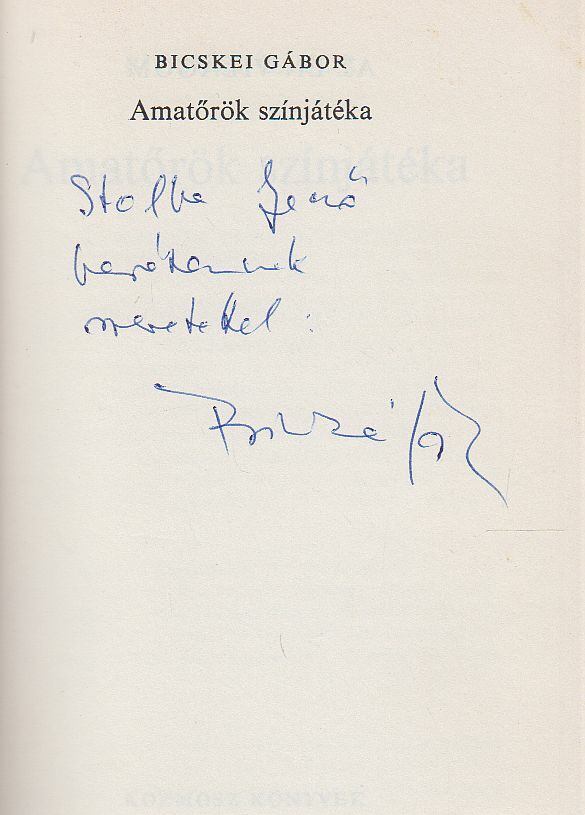 BICSKEI GÁBOR
Amatőrök színjátéka
Stolba Jenő
barátomnak
szeretettel :
KOZMOSZ KÖNYVEK